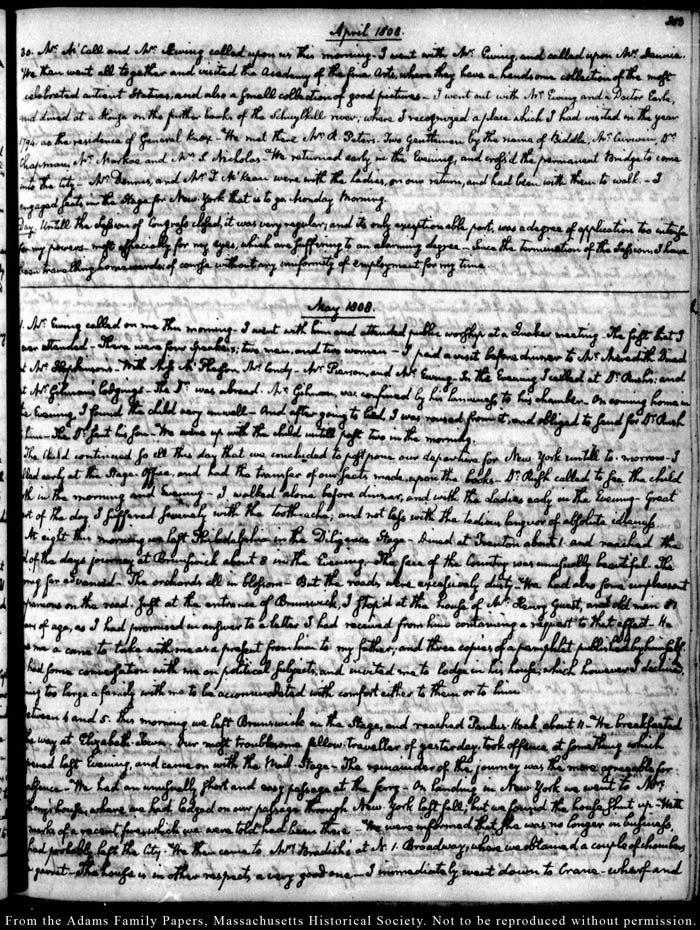 April 1808.
203
30. Mr. M'Call and Mr. Ewing called upon us this morning. I went with Mr. Ewing, and called upon Mr. Dennie.
We then went all together and visited the Academy of the fine Arts, where they have a handsome collection of the most
celebrated antient Statues, and also a small collection of good pictures. I went out with Mr. Ewing and Doctor Earle,
and dined at a house on the further bank of the Schuylkill river; where I recognized a place which I had visited in the year
1794. as the residence of General Knox. We met there Mr. R. Peters. Two Gentlemen by the name of Biddle, Mr. Curwen, Dr.
Chapman, Mr. Markoe and Mr. S. Nicholas. We returned early in the Evening, and cross'd the permanent Bridge to come
into the city. Mr. Dennie, and Mr. T. M'Kean were with the Ladies, on our return, and had been with them to walk. I
engaged seats in the Stage for New York that is to go Monday Morning.
Day. Untill the Session of Congress closed, it was very regular; and its only exceptionable part, was a degree of application too intense
for my powers. most especially for my eyes, which are suffering to an alarming degree. Since the termination of the Session I have
been travelling homewards of course without any uniformity of employment for my time.
May 1808.
1. Mr. Ewing called on me this morning. I went with him and attended public worship at a Quaker meeting. The first that I
ever attended. There were four speakers; two men, and two women. I paid a visit before dinner to Mr. Meredith. Dined
at Mr. Hopkinson's. With Miss Mr. Condy. Mr. Pierson, and Mr. Ewing. In the Evening I called at Dr. Rush's: and
at Mr. Gilman's lodgings. The Dr. was abroad. Mr. Gilman, was confined by his lameness to his chamber. On coming home in
the Evening, I found the child very unwell. And after going to bed, I was roused from it, and obliged to send for Dr. Rush
to him. The Dr. sent his son. We were up with the child untill past two in the morning.
The Child continued so ill this day that we concluded to postpone our departure for New York untill to-morrow. I
called early at the Stage-Office, and had the transfer of our seats made, upon the books. Dr. Rush called to see the child
both in the morning and Evening. I walked alone before dinner, and with the Ladies early in the Evening. Great
part of the day I suffered severely with the toothache; and not less with the tedious languor of absolute idleness.
At eight this morning we left Philadelphia in the Diligence Stage. Dined at Trenton about 1. and reached the
end of the days journey at Brunswick about 8 in the Evening. The face of the Country was unusually beautiful. The
Spring far advanced. The orchards all in blossom. But the roads were excessively dusty. We had also some unpleasant
companions on the road. Just at the entrance of Brunswick, I stop'd at the house of Mr. Henry Guest, an old man 81
years of age, as I had promised in answer to a letter I had received from him containing a request to that effect. He
gave me a cane to take with me as a present from him to my father, and three copies of a pamphlet published by himself.
I had some conversation with me on political subjects, and invited me to lodge in his house; which however I declined,
having too large a family with me to be accommodated with comfort either to them or to him.
Between 4 and 5. this morning we left Brunswick in the Stage, and reached Paulus-Hook about 11. We breakfasted
on the way at Elizabeth-Town. Our most troublesome fellow-traveller of yesterday, took offence at something which
happened last Evening, and came on with the Mail-Stage. The remainder of the journey was the more agreeable for
his absence. We had an unusually short and easy passage at the ferry. On landing in New York we went to Mrs.
house, where we had lodged on our passage through New York last fall; but we found the house shut up. With
marks of a recent fire, which we were told had been there. We were informed that she was no longer in business,
and had probably left the City. We then came to Mrs. Bradish's at N. 1. Broadway, where we obtained a couple of chambers
in the garret. The house is in other respects a very good one. I immediately went down to Crane-wharf and
From the Adams Family Papers, Massachusetts Historical Society. Not to be reproduced without permission.